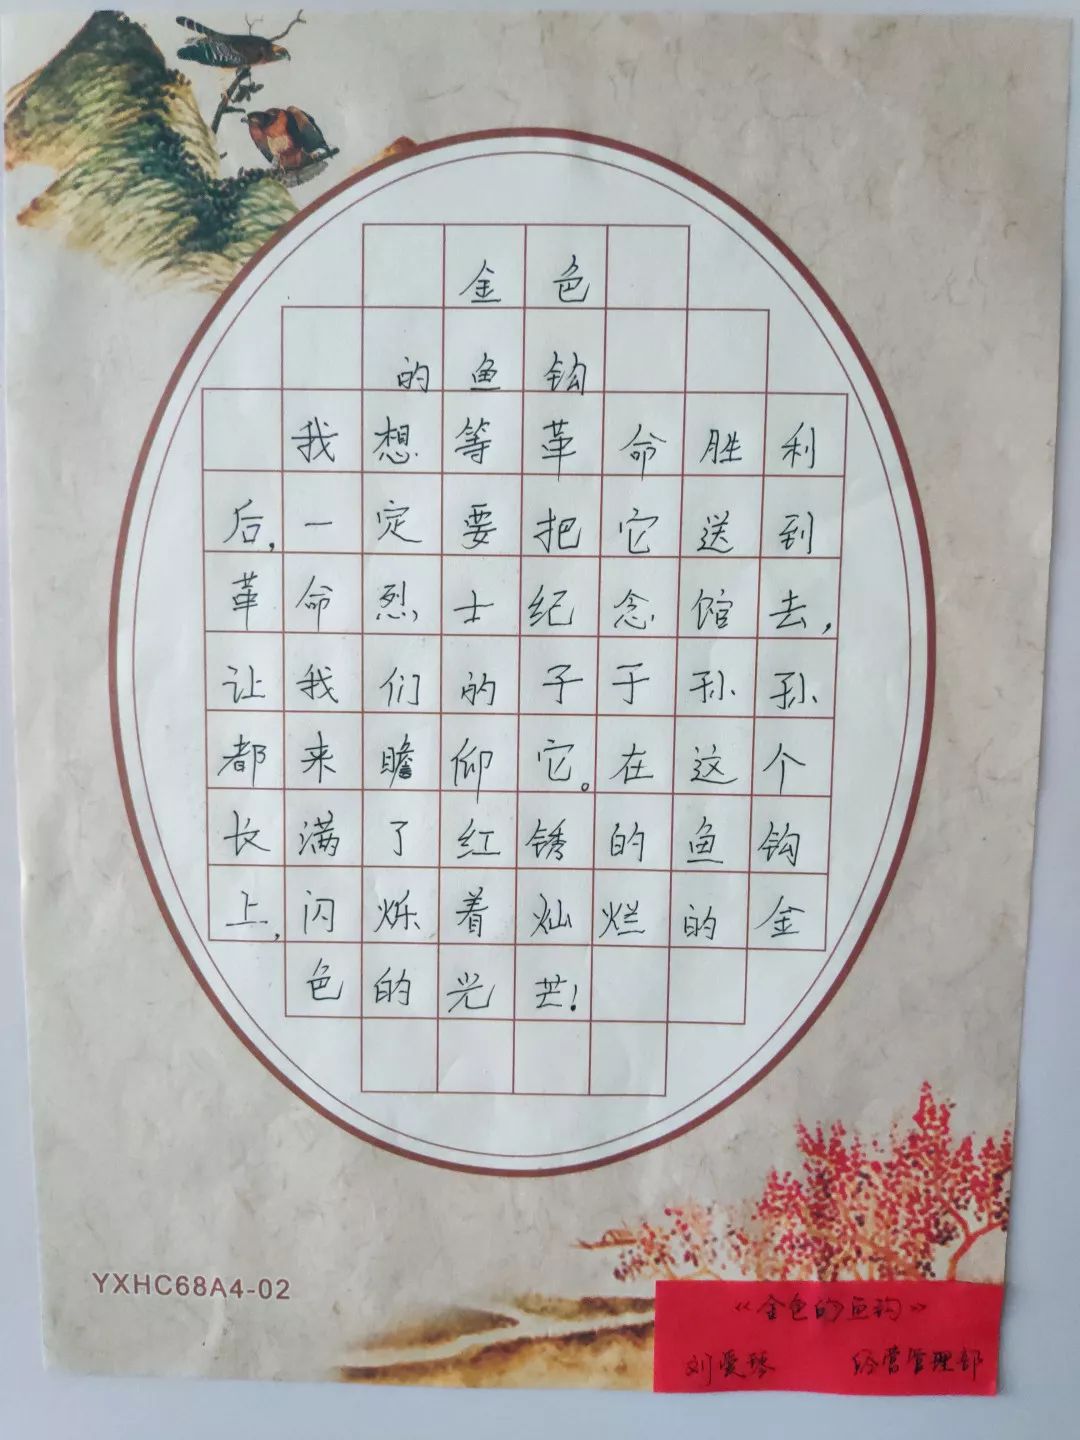 金色
的鱼钩
我想等革命胜利
后,一定要把它送到
革命烈士纪念馆去,
让我们的子于孙孙
都来瞻仰它。在这个
长满了红锈的鱼钩
上,闪烁着灿烂的金
色的光芒!
YXHC68A4-02
《金色的鱼钩》
刘爱琴 经营管理部